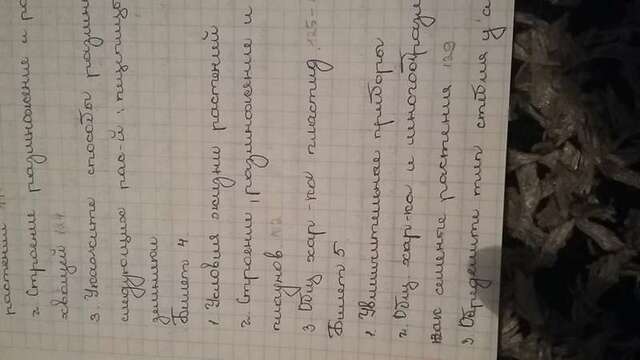 растений
2. Строение размножение и
хвощей 124
3. Укажите способы
следующих рас-й: пшеницы
земники
Билет 4.
1. Условия жизни растений
2. Строение, размножение и
плаунов.
3. Общ хар-ка пластид. 125-
Билет 5
1. Увеличительные приборы
2. Общ. хар-ка и
как семеные растения 129
3. Определите тип стебля у